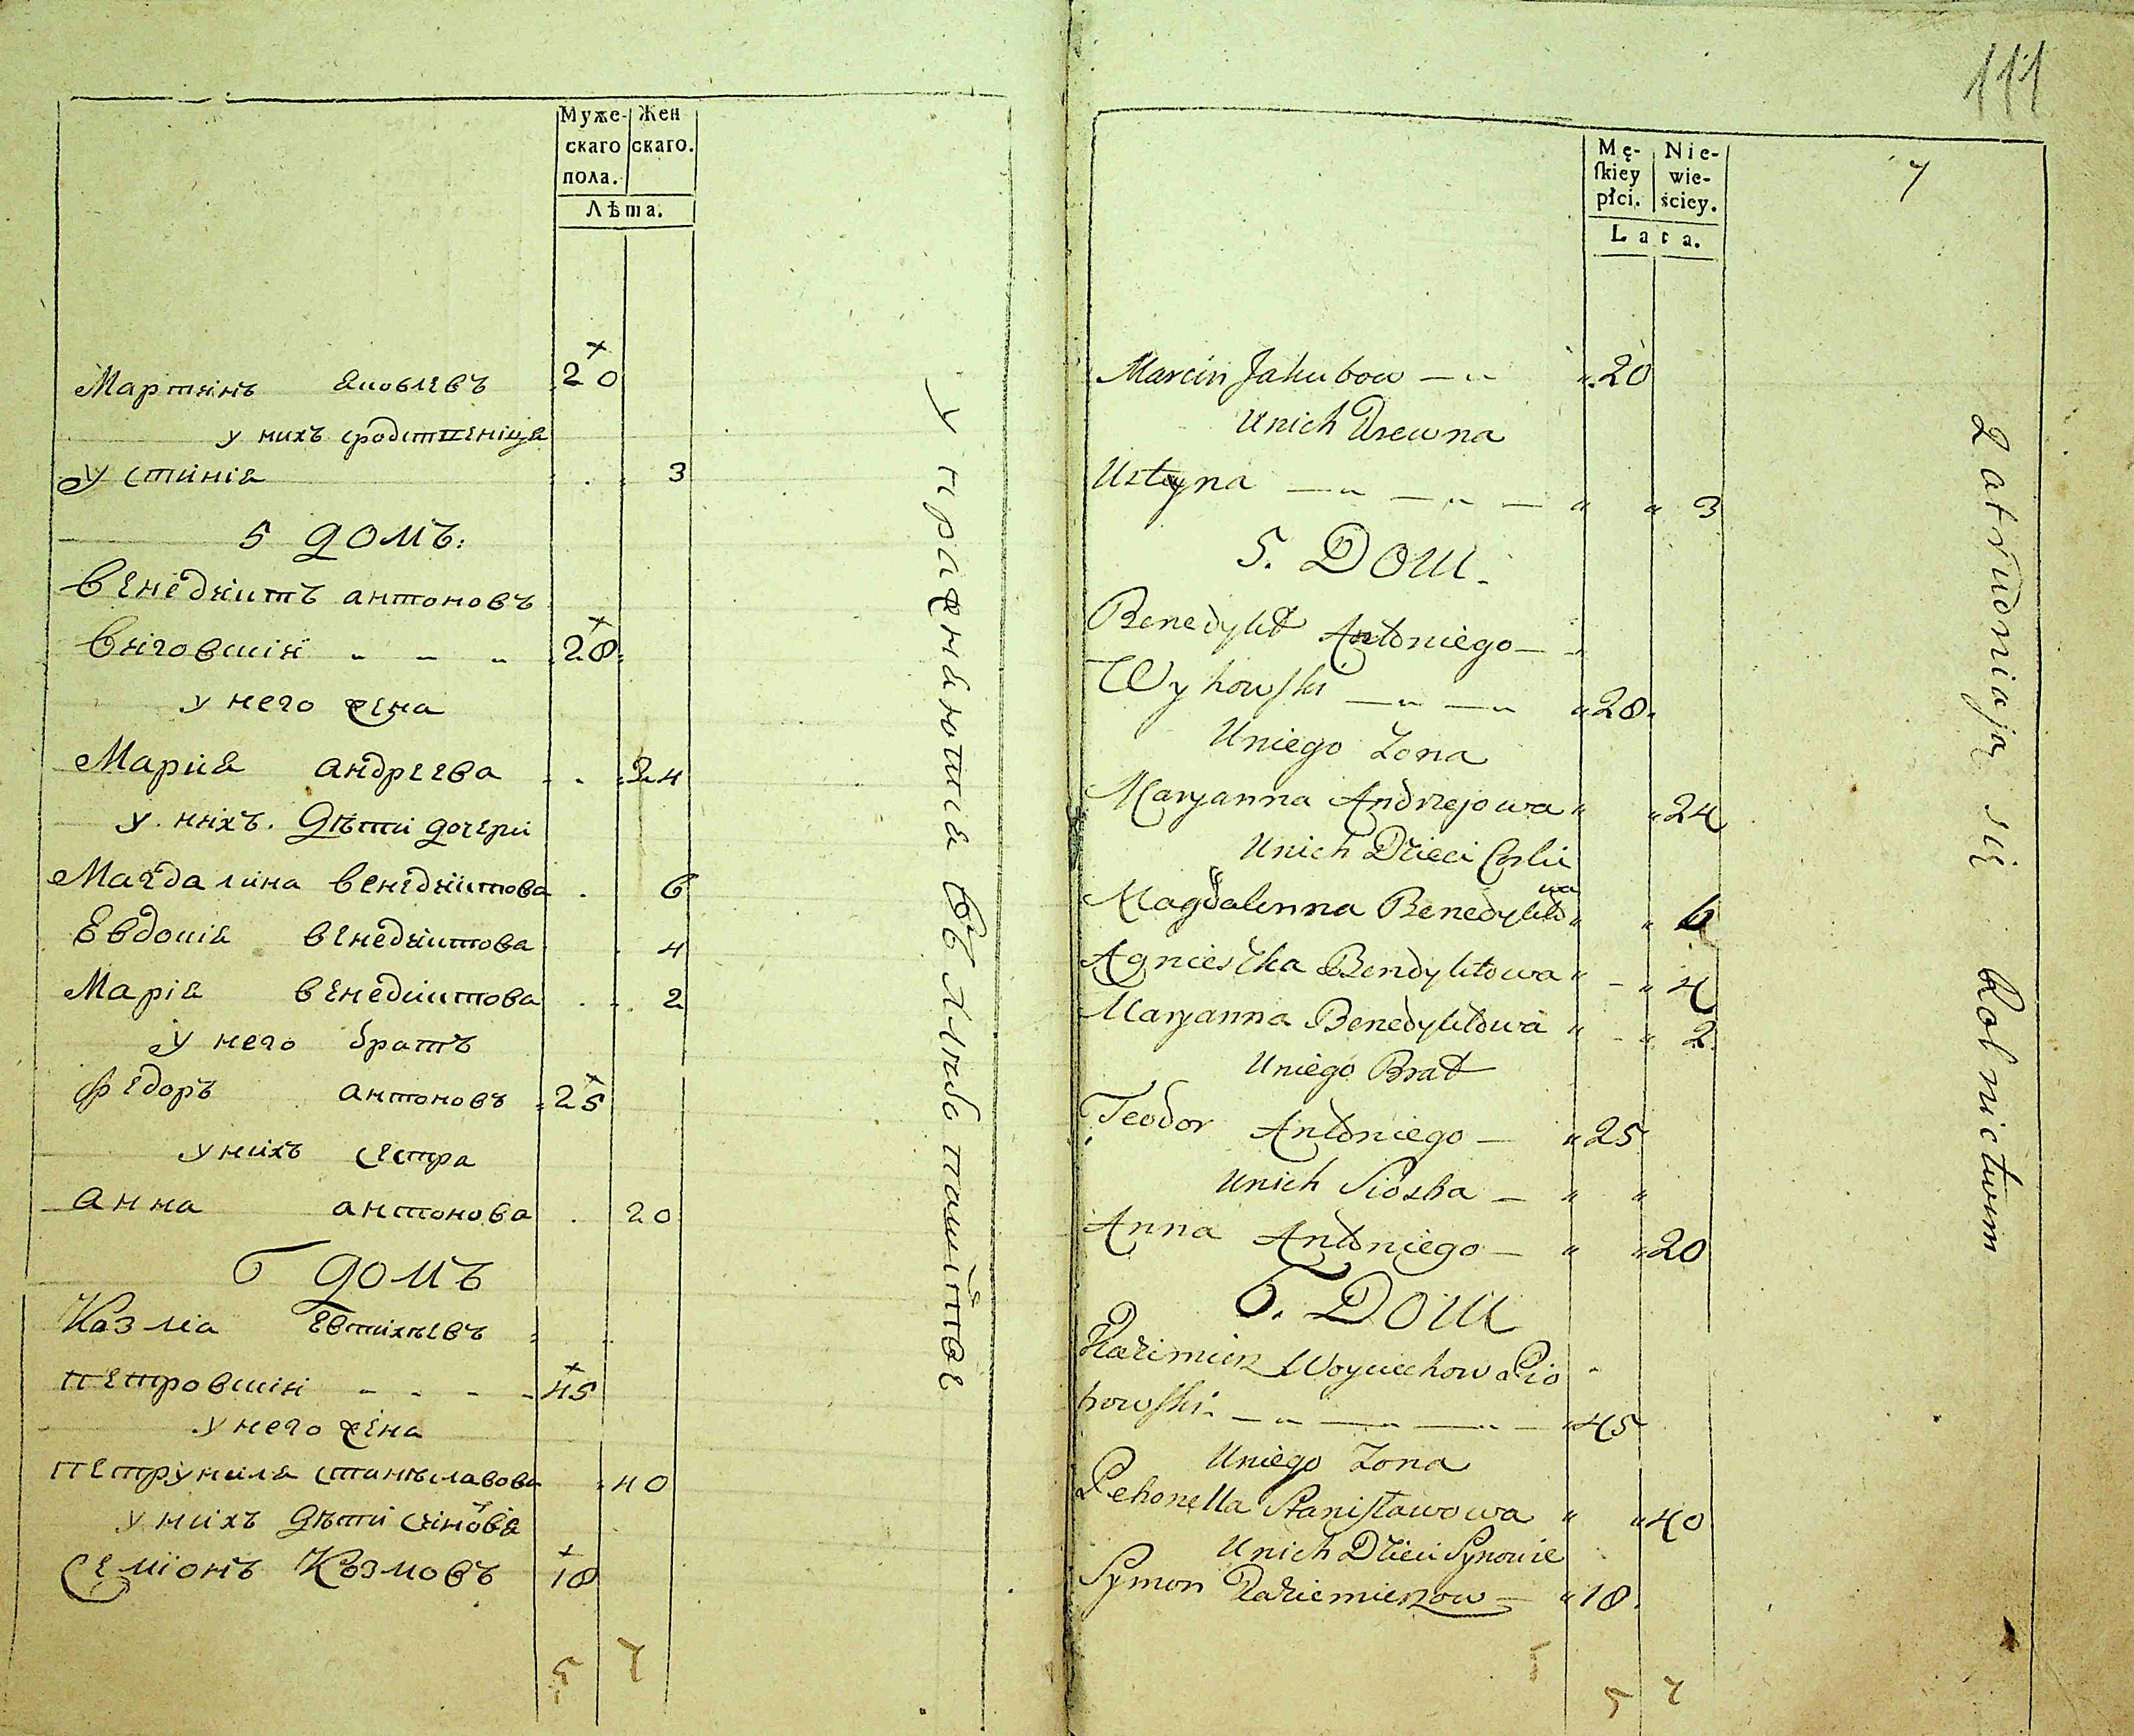 Муже-
скаго
пола.
Жен
скаго.
Лѣта.
Мартинъ Яковлевъ 20
у нихъ сродственица
Устинія 3
5 домъ:
Венедиктъ антоновъ
Виговский 28
у него жена
Мария андреева 24
у нихъ дѣти дочери
Магдалина венедиктова 6
Евдокия венедиктова 4
Марія венедиктова 2
у него братъ
Федоръ антоновъ 25
у нихъ сестра
анна антонова 20
6 домъ
Казма Евтихѣевъ
петровский 45
у него жена
петрунеля станиславова 40
у нихъ дѣти синовя
Семионъ Козмовъ 18
5 7
Упражнаютца въ хлѣбопашйствѣ
111
7
Mę-
skiey
płci.
Nie-
wie-
ściey.
Lata.
Marcin Jakubow 20
Unich Krewna
Ustyna 3
5. Dom.
Benedykt Antoniego
Wyhowski 28
Uniego Zona
Maryanna Andrzejowa 24
Unich Dzieci Corki
Magdalenna Benedyktowa 6
Agnieszka Bendyktowa 4
Maryanna Benedyktowa 2
Uniego Brat
Teodor Antoniego 25
Unich Siostra
Anna Antoniego 20
6. Dom
Kazimierz Woyciechow Pio
trowski 45
Uniego Zona
Petronella Stanisławowa 40
Unich Dzieci Synowie
Symon Kaziemierzow 18
5 7
Zatrudniają się Rolnictwim